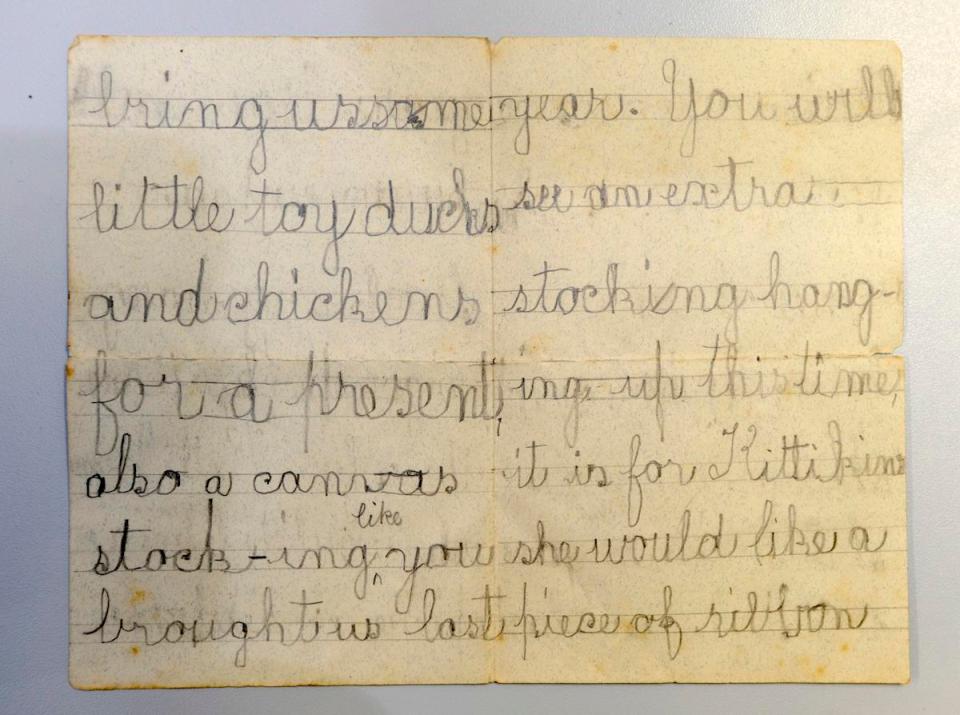 bring us some
little toy ducks
and chickens
for a present,
also a canvas
like
stock-ing, you
brought us last
year. You will
see an extra
stocking hang-
ing up this time,
it is for Kittikins
she would like a
piece of ribbon